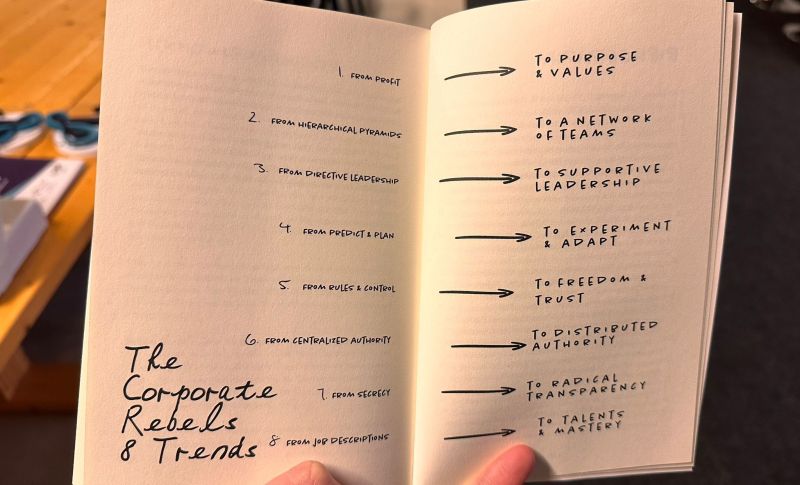 1. FROM PROFIT
TO PURPOSE
& VALUES
2. FROM HIERARCHICAL PYRAMIDS
TO A NETWORK
OF TEAMS
3. FROM DIRECTIVE LEADERSHIP
TO SUPPORTIVE
LEADERSHIP
4. FROM PREDICT & PLAN
TO EXPERIMENT
& ADAPT
5. FROM RULES & CONTROL
TO FREEDOM &
TRUST
6. FROM CENTRALIZED AUTHORITY
TO DISTRIBUTED
AUTHORITY
7. FROM SECRECY
TO RADICAL
TRANSPARENCY
8 FROM JOB DESCRIPTIONS
TO TALENTS
& MASTERY
The
Corporate
Rebels
8 Trends